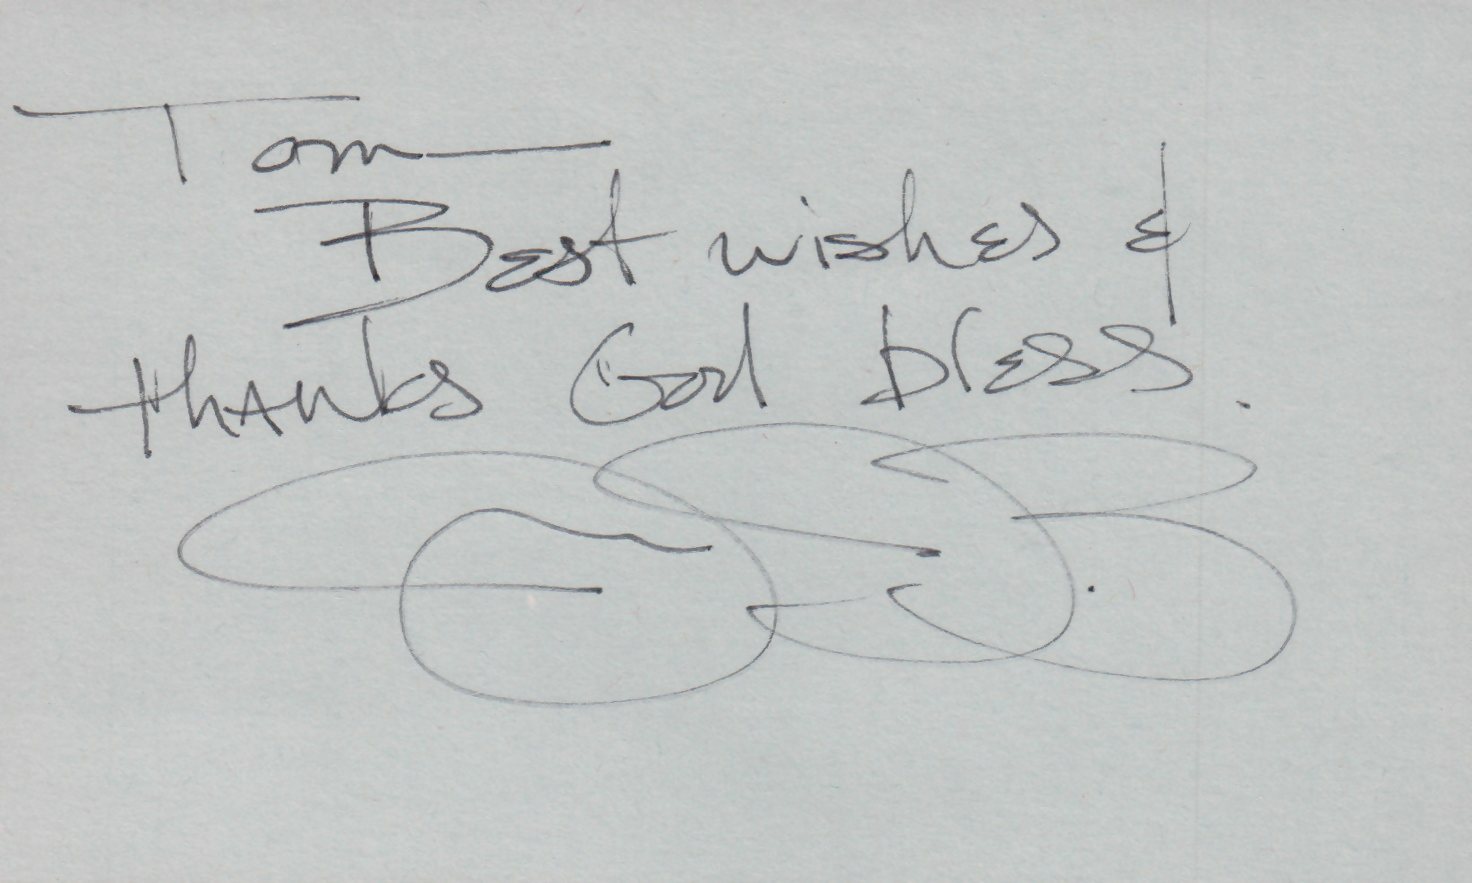 Tom —
Best wishes &
thanks God bless.